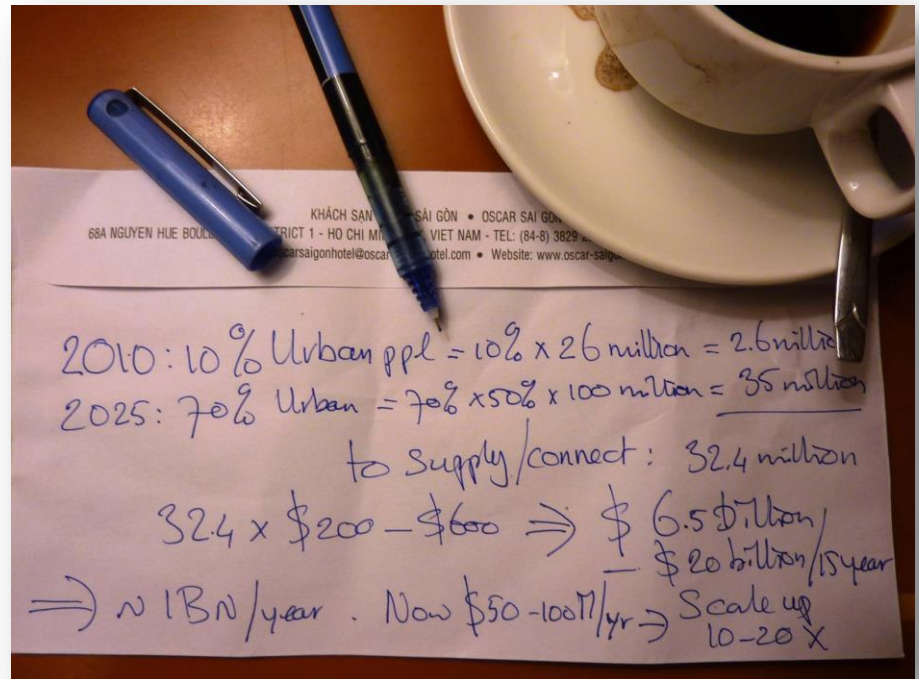 KHÁCH SẠN SÀI GÒN • OSCAR SAI GON
68A NGUYEN HUE TRICT 1 - HO CHI VIET NAM - TEL: (84-8) 3829
carsaigonhotel@oscar otel.com • Website: www.oscar-saig
2010: 10% Urban ppl = 10% x 26 million = 2.6 millio
2025: 70% Urban = 70% x 50% x 100 million = 35 million
to supply/connect: 32.4 million
32.4 x $200 - $600 ⇒ $ 6.5 billion/
- $20 billion/15year
⇒ ~ 1BN/year. Now $50-100M/yr → Scale up
10-20 X